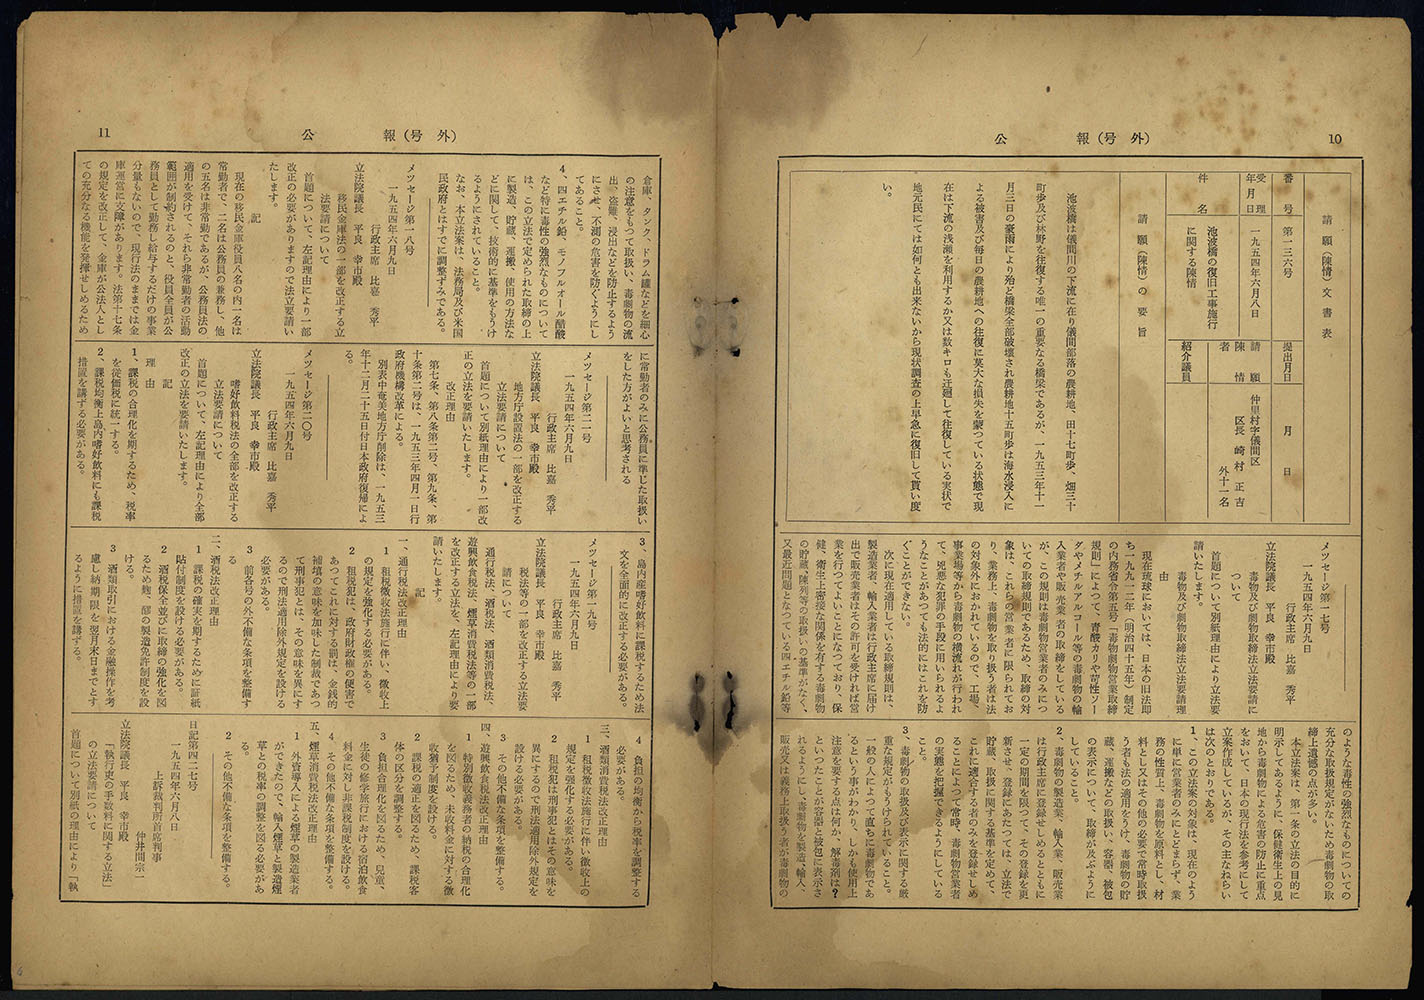 10
公報（号外）
請願（陳情）文書表
番号
第一三六号
受理年月日
一九五四年六月八日
提出月日
月日
件名
池波橋の復旧工事施行
に関する陳情
請願
陳情
者
仲里村字儀間区
区長 崎村 正吉
外十一名
紹介議員
請願（陳情）の要旨
池波橋は儀間川の下流に在り儀間部落の農耕地、田十七町歩、畑三十
町歩及び林野を往復する唯一の重要なる橋梁であるが、一九五三年十一
月三日の豪雨により殆ど橋梁全部破壊され農耕地十五町歩は海水浸入に
よる被害及び毎日の農耕地への往復に莫大な損失を蒙つている状態で現
在は下流の浅瀬を利用するか又は数キロも迂廻して往復している実状で
地元民にては如何とも出来ないから現状調査の上早急に復旧して貰い度
い。
メツセージ第一七号
一九五四年六月九日
行政主席 比嘉 秀平
立法院議長 平良 幸市殿
毒物及び劇物取締法立法要請に
ついて
首題について別紙理由により立法要
請いたします。
毒物及び劇物取締法立法要請理
由
現在琉球においては、日本の旧法即
ち一九一二年（明治四十五年）制定
の内務省令第五号「毒物劇物営業取締
規則」によつて、青酸カリや苛性ソー
ダやメチルアルコール等の毒劇物の輸
入業者や販売業者の取締をしている
が、この規則は毒劇物営業者のみにつ
いての取締規則であるため、取締の対
象は、これらの営業者に限られてお
り、業務上、毒劇物を取り扱う者は法
の対象外におかれているので、工場、
事業場等から毒劇物の横流れが行われ
て、兇悪な犯罪の手段に用いられるよ
うなことがあつても法的にはこれを防
ぐことができない。
次に現在適用している取締規則は、
製造業者、輸入業者は行政主席に届け
出で販売業者はその許可を受ければ営
業を行つてよいことになつており、保
健、衛生上密接な関係を有する毒劇物
の貯蔵、陳列等の取扱いの基準がなく、
又最近問題となつている四エチル鉛等
のような毒性の強烈なものについての
充分な取扱規定がないため毒劇物の取
締上遺憾の点が多い。
本立法案は、第一条の立法の目的に
明示してあるように、保健衛生上の見
地から毒劇物による危害の防止に重点
をおいて、日本の現行法を参考にして
立案作成しているが、その主なねらい
は次のとおりである。
1、この立法案の対象は、現在のよう
に単に営業者のみにとどまらず、業
務の性質上、毒劇物を原料とし、材
料とし又はその他の必要で常時取扱
う者も法の適用をうけ、毒劇物の貯
蔵、運搬などの取扱い、容器、被包
の表示について、取締が及ぶように
していること。
2、毒劇物の製造業、輸入業、販売業
は行政主席に登録せしめるとともに
一定の期間を限つて、その登録を更
新させ、登録にあたつては、立法で
貯蔵、取扱に関する基準を定めて、
これに適合する者のみを登録せしめ
ることによつて常時、毒劇物営業者
の実態を把握できるようにしている
こと。
3、毒劇物の取扱及び表示に関する厳
重な規定がもうけられていること。
一般の人によつて直ちに毒劇物であ
るという事がわかり、しかも使用上
注意を要する点は何か、解毒剤は？
といつたことが容器と被包に表示さ
れるようにし、毒劇物の製造、輸入、
販売又は義務上取扱う者が毒劇物の
11
公報（号外）
倉庫、タンク、ドラム罐などを細心
の注意をもつて取扱い、毒劇物の流
出、盗難、浸出などを防止するよう
にさせ、不測の危害を防ぐようにし
てあること。
4、四エチル鉛、モノフルオール醋酸
など特に毒性の強烈なものについて
は、この立法で定められた取締の上
に製造、貯蔵、運搬、使用の方法な
どに関して、技術的に基準をもうけ
るようにされていること。
なお、本立法案は、法務局及び米国
民政府とはすでに調整ずみである。
メツセージ第一八号
一九五四年六月九日
行政主席 比嘉 秀平
立法院議長 平良 幸市殿
移民金庫法の一部を改正する立
法要請について
首題について、左記理由により一部
改正の必要がありますので法立要請い
たします。
記
現在の移民金庫役員八名の内一名は
常勤者で、二名は公務員の兼務し、他
の五名は非常勤であるが、公務員法の
適用を受けて、それら非常勤者の活動
範囲が制約されるのと、役員全員が公
務員として勤務し給与するだけの事業
分量もないので、現行法のままでは金
庫運営に支障があります。法第十七条
の規定を改正して、金庫が公法人とし
ての充分なる機能を発揮せしめるため
に常勤者のみに公務員に準じた取扱い
をした方がよいと思考される
メツセージ第二一号
一九五四年六月九日
行政主席 比嘉 秀平
立法院議長 平良 幸市殿
地方庁設置法の一部を改正する
立法要請について
首題について別紙理由により一部改
正の立法を要請いたします。
改正理由
第七条、第八条第二号、第九条、第
十条第二号は、一九五三年四月一日行
政府機構改革による。
別表中奄美地方庁削除は、一九五三
年十二月二十五日付日本政府復帰によ
る。
メツセージ第二〇号
一九五四年六月九日
行政主席 比嘉 秀平
立法院議長 平良 幸市殿
嗜好飲料税法の全部を改正する
立法要請について
首題について、左記理由により全部
改正の立法を要請いたします。
記
理由
1、課税の合理化を期するため、税率
を従価税に統一する。
2、課税均衡上島内嗜好飲料にも課税
措置を講ずる必要がある。
3、島内産嗜好飲料に課税するため法
文を全面的に改正する必要がある。
メツセージ第一九号
一九五四年六月九日
行政主席 比嘉 秀平
立法院議長 平良 幸市殿
税法等の一部を改正する立法要
請について
通行税法、酒税法、酒類消費税法、
遊興飲食税法、煙草消費税法等の一部
を改正する立法を、左記理由により要
請いたします。
記
一、通行税法改正理由
1 租税徴收法施行に伴い、徴收上
の規定を強化する必要がある。
2 租税犯は、政府財政権の便害で
あつてこれに対する罰は、金銭的
補填の意味を加味した制裁であつ
て刑事犯とは、その意味を異にす
るので刑法適用除外規定を設ける
必要がある。
3 前各号の外不備な条項を整備す
る
二、酒税法改正理由
1 課税の確実を期するために証紙
貼付制度を設ける必要がある。
2 酒税保全並びに取締の強化を図
るため麹、醪の製造免許制度を設
ける。
3 酒類取引における金融操作を考
慮し納期限を翌月末日までとす
るように措置を講ずる。
4 負担の均衡から税率を調整する
必要がある。
三、酒類消費税法改正理由
1 租税徴收法施行に伴い徴收上の
規定を強化する必要がある。
2 租税犯は刑事犯とはその意味を
異にするので刑法適用除外規定を
設ける必要がある。
3 その他不備な条項を整備する。
四、遊興飲食税法改正理由
1 特別徴收義務者の納税の合理化
を図るため、未收料金に対する徴
收猶予制度を設ける。
2 課税の適正を図るため、課税客
体の区分を調整する。
3 負担合理化を図るため、兒童、
生徒の修学旅行における宿泊飲食
料金に対し非課税制度を設ける。
4 その他不備な条項を整備する。
五、煙草消費税法改正理由
1 外資導入による煙草の製造業者
ができたので、輸入煙草と製造煙
草との税率の調整を図る必要があ
る。
2 その他不備な条項を整備する。
日記第四二七号
一九五四年六月八日
上訴裁判所首席判事
仲井間宗一
立法院議長 平良 幸市殿
「執行吏の手数料に関する立法」
の立法要請について
首題について別紙の理由により「執